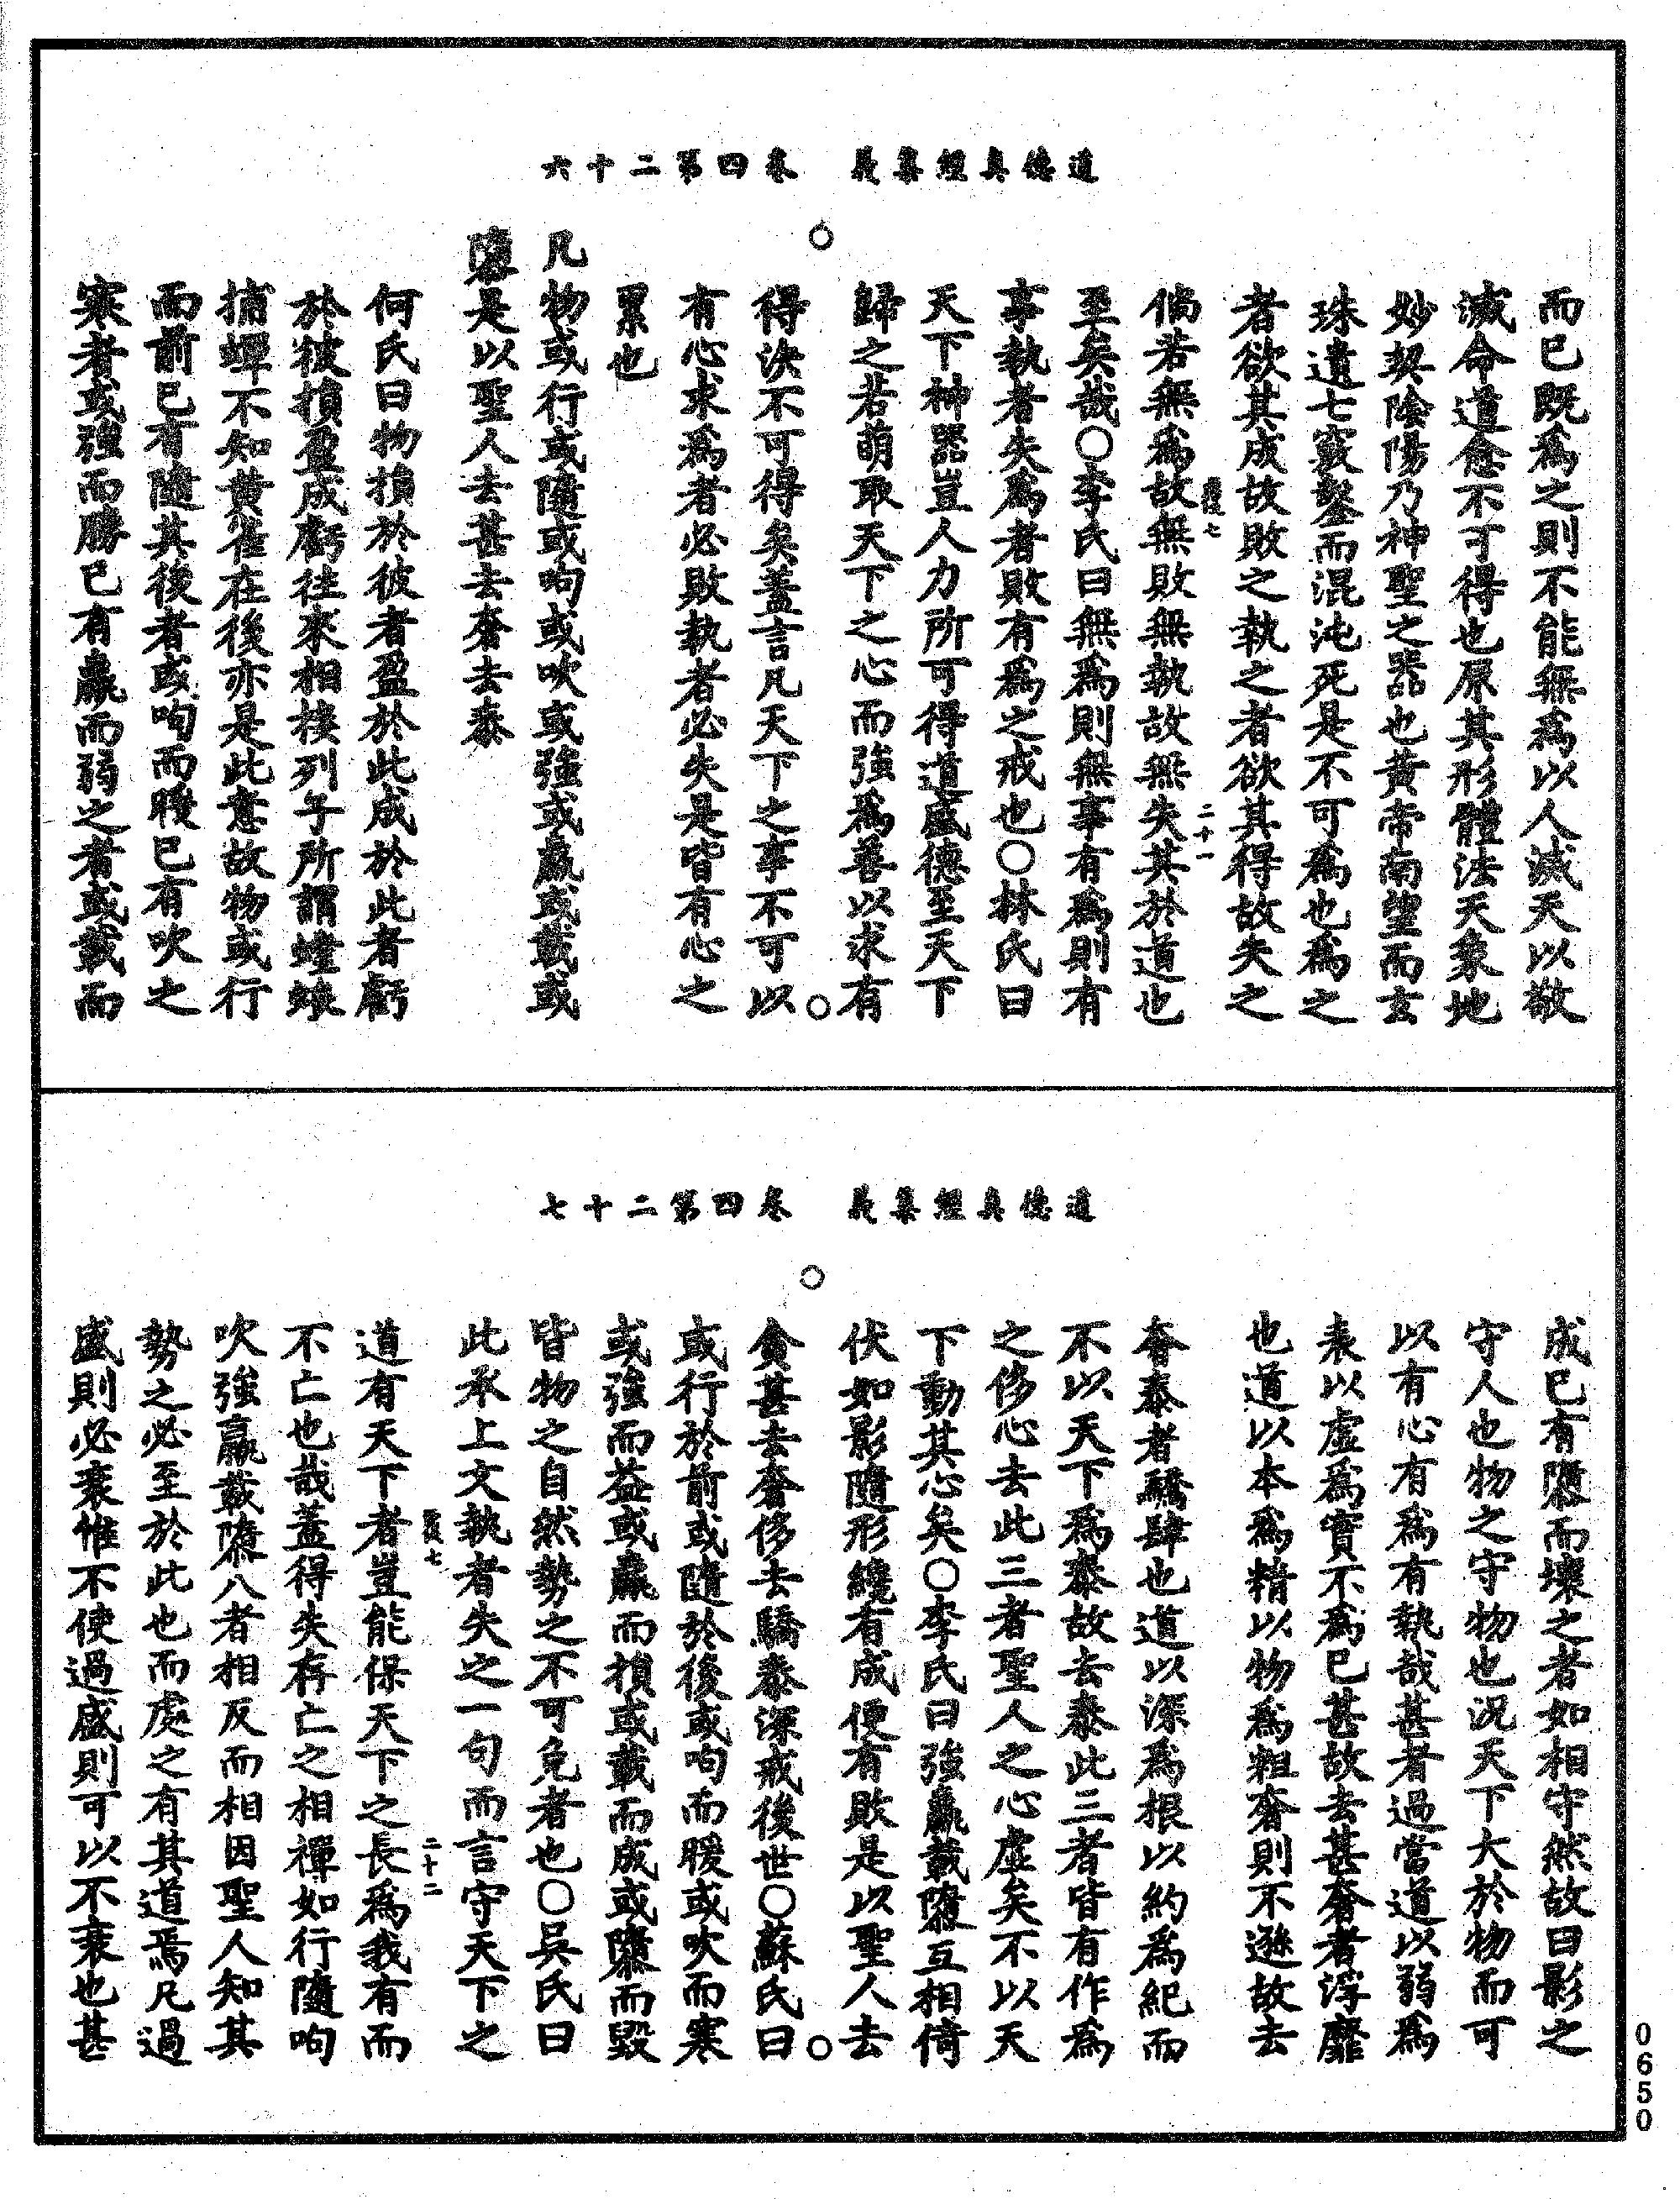 道德真經集義　卷四第二十六
而已既爲之則不能無爲以人滅天以敬
滅命道愈不可得也原其形體法天象地
妙契陰陽乃神聖之器也黃帝南望而玄
珠遺七竅鑿而混沌死是不可爲也爲之
者欲其成故敗之執之者欲其得故失之
二十一
倘若無爲故無敗無執故無失其於道也
至矣哉○李氏曰無爲則無事有爲則有
事執者失爲者敗有爲之戒也○林氏曰
天下神器豈人力所可得道盛德至天下
歸之若萌取天下之心而強爲善以求有
得決不可得矣蓋言凡天下之事不可以
有心求爲者必敗執者必失是皆有心之
累也
凡物或行或隨或呴或吹或強或羸或載或
隳是以聖人去甚去奢去泰
何氏曰物損於彼者盈於此成於此者虧
於彼損盈成虧往來相接列子所謂螳螂
捕蟬不知黃雀在後亦是此意故物或行
而前已有隨其後者或呴而暖已有吹之
寒者或強而勝已有羸而弱之者或載而
道德真經集義　卷四第二十七
成已有隳而壞之者如相守然故曰影之
守人也物之守物也況天下大於物而可
以有心有爲有執哉甚者過當道以弱爲
表以虛爲實不爲已甚故去甚奢者浮靡
也道以本爲精以物爲粗奢則不遜故去
奢泰者驕肆也道以深爲根以約爲紀而
不以天下爲泰故去泰此三者皆有作爲
之侈心去此三者聖人之心虛矣不以天
下動其心矣○李氏曰強羸載隳互相倚
伏如影隨形纔有成便有敗是以聖人去
貪甚去奢侈去驕泰深戒後世○蘇氏曰
或行於前或隨於後或呴而暖或吹而寒
或強而益或羸而損或載而成或隳而毀
皆物之自然勢之不可免者也○吳氏曰
此承上文執者失之一句而言守天下之
二十二
道有天下者豈能保天下之長爲我有而
不亡也哉蓋得失存亡之相禪如行隨呴
吹強羸載隳八者相反而相因聖人知其
勢之必至於此也而處之有其道焉凡過
盛則必衰惟不使過盛則可以不衰也甚
0650